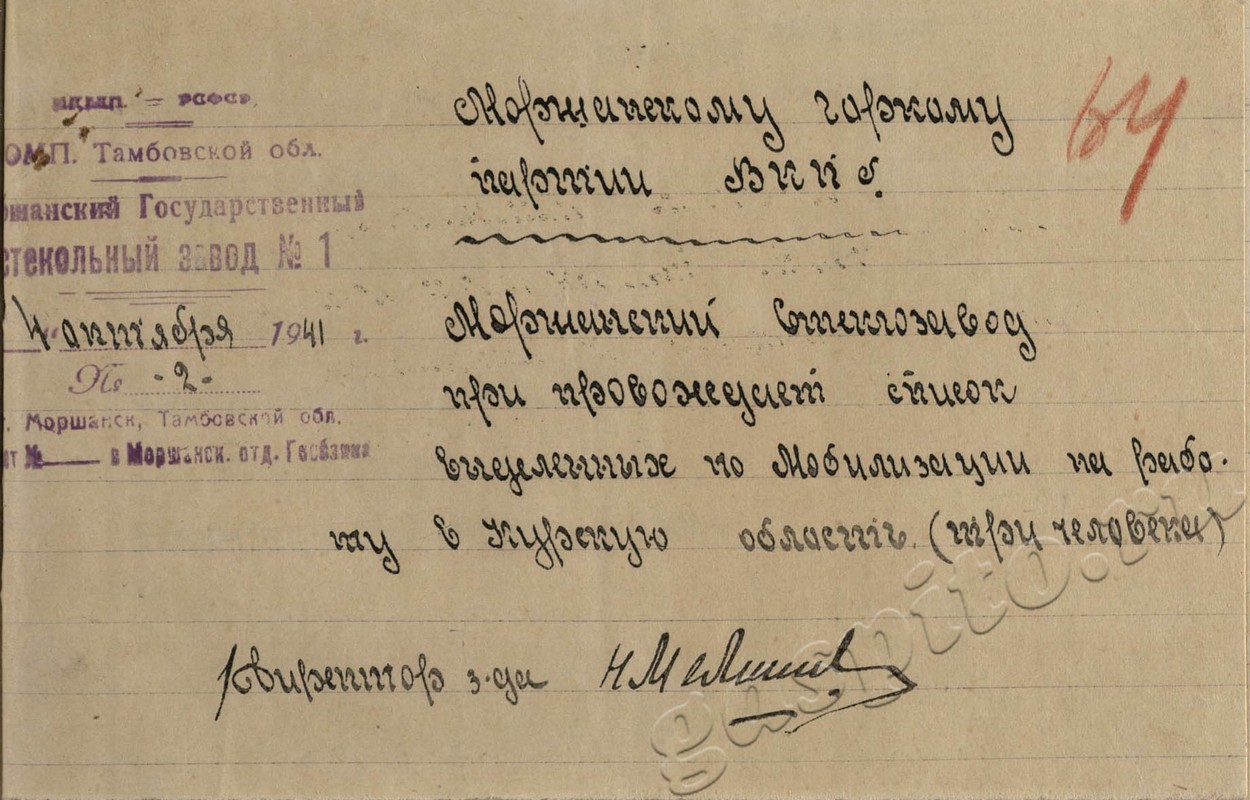 РСФСР
ОМП. Тамбовской обл.
ршанский Государственный
стекольный завод № 1
4 октября 1941 г.
№ - 2 -
г. Моршанск, Тамбовской обл.
т № в Моршанск. отд. Госбанка
Моршанскому горкому
партии ВКП б.
64
Моршанский стеклозавод
при провождает список
выделенных по Мобилизации на рабо-
ту в Курскую область. (три человека)
Директор з-да
gaspito.ru